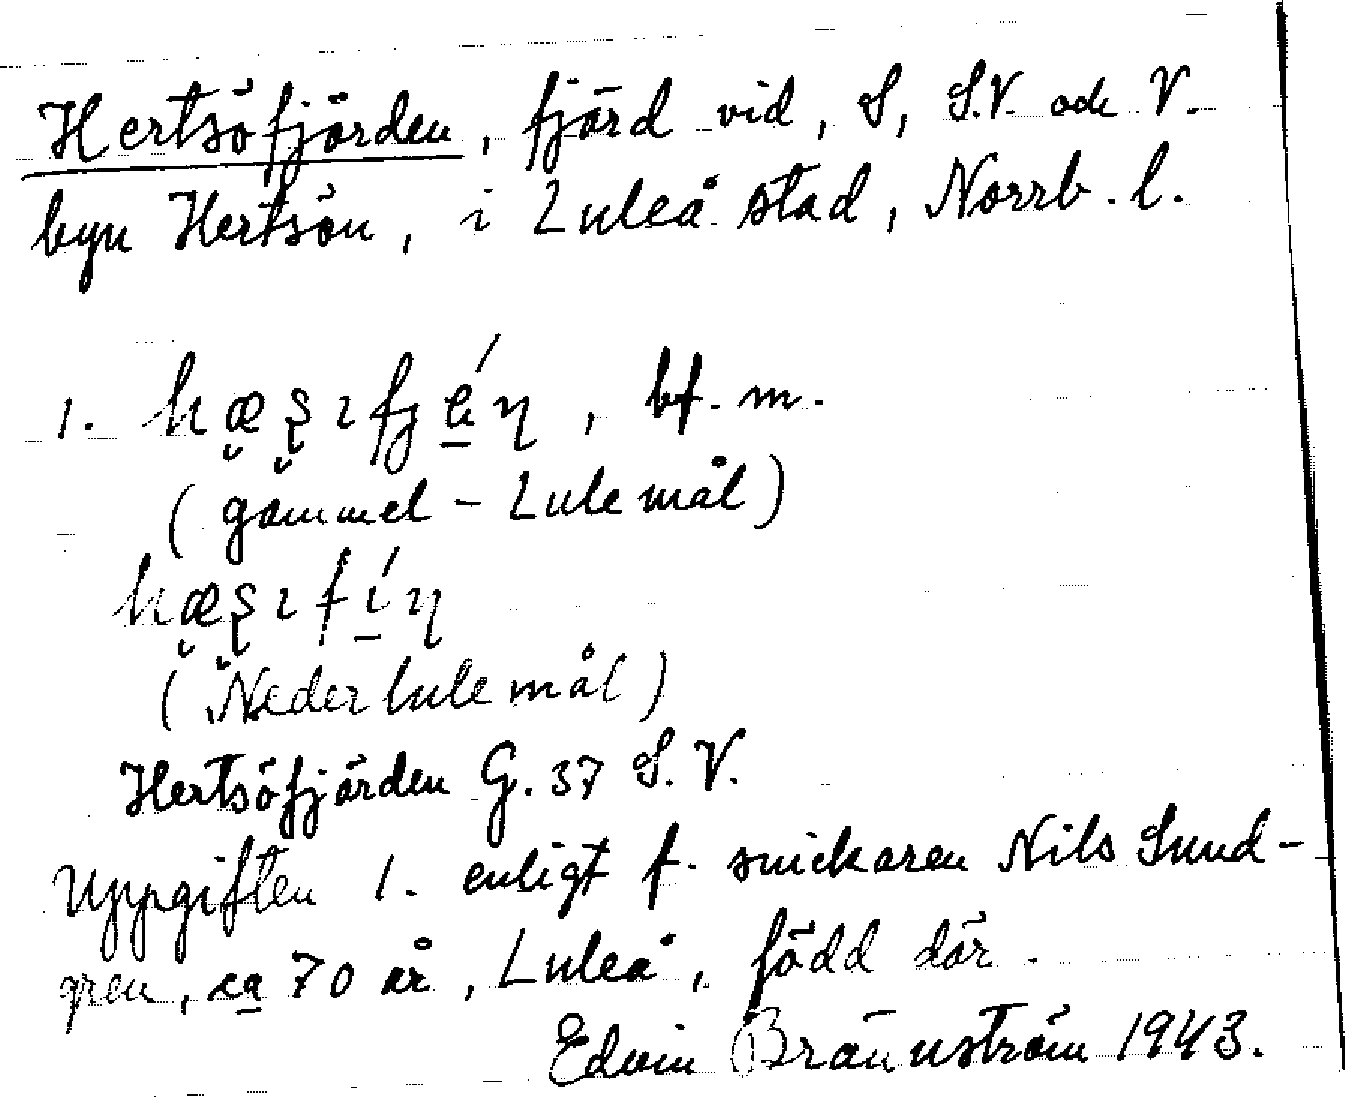 Hertsöfjärden, fjärd vid, S, S.V. och V.
byn Hertsön, i Luleå stad, Norrb. l.
1. , bf. m.
(gammel-Lulemål)
(Nederlulemål)
Hertsöfjärden G. 37 S. V.
Uppgiften 1. enligt f. snickaren Nils Sund-
gren, ca 70 år, Luleå, född där.
Edvin Brännström 1943.